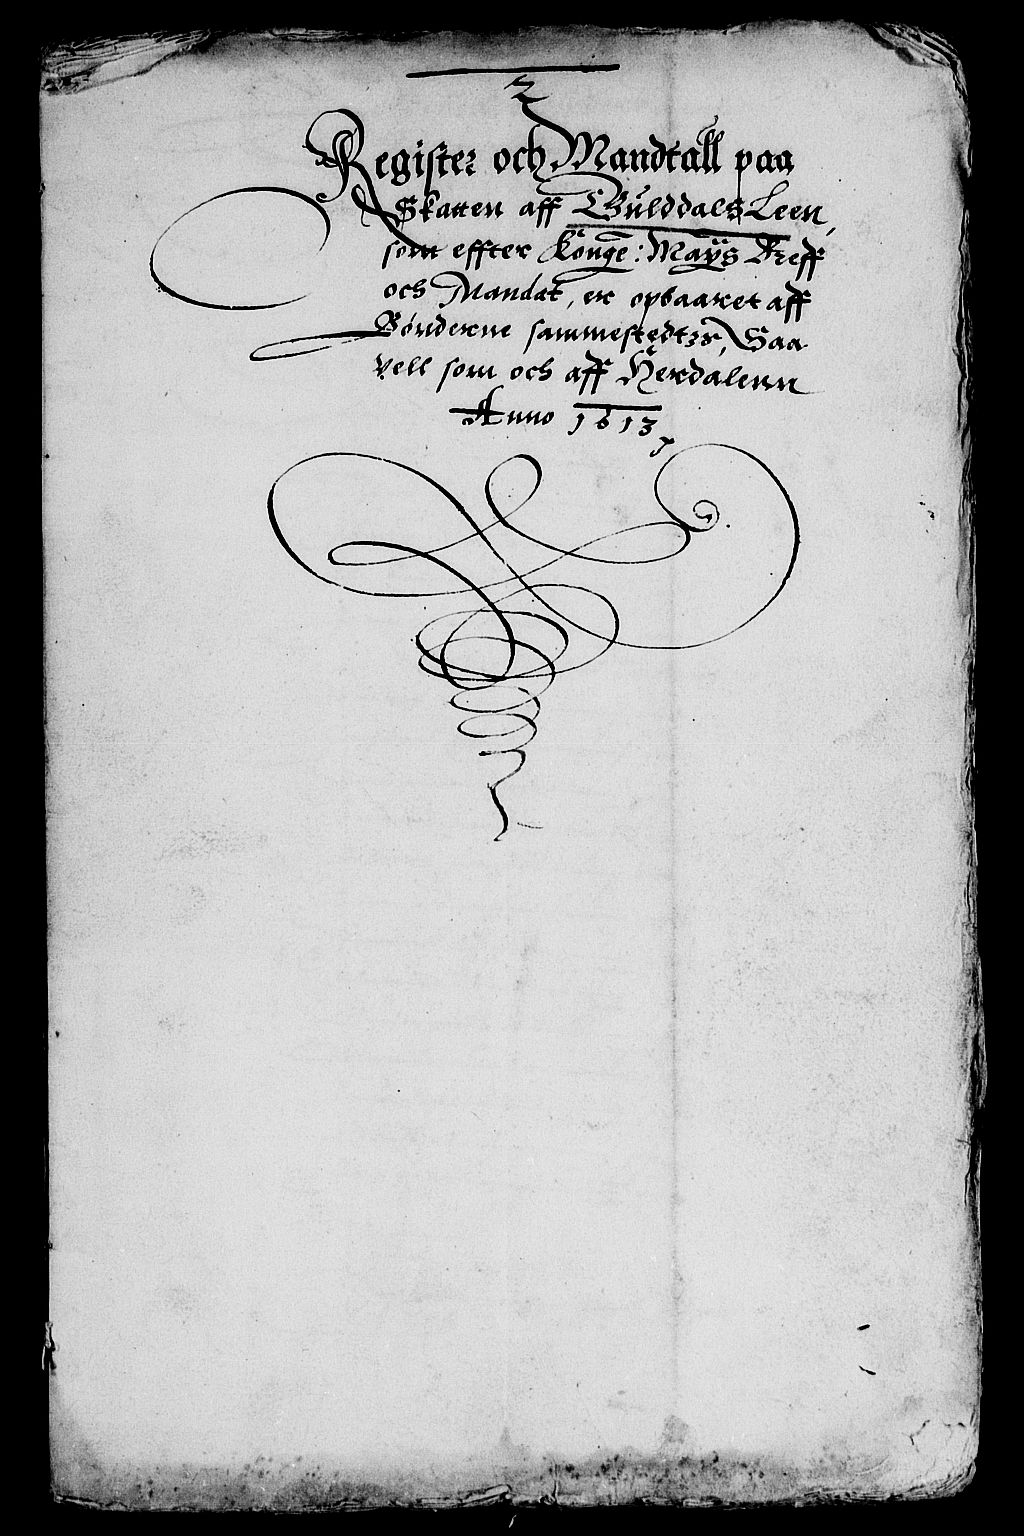 2
Register och Mandtall paa
Skatten aff Gulddals Leen,
som effter Konge: Mays Breff
och Mandat, er opbaaret aff
Bønderne sammestedtzs, Saa
vell som och aff Herdalenn
Anno 1613